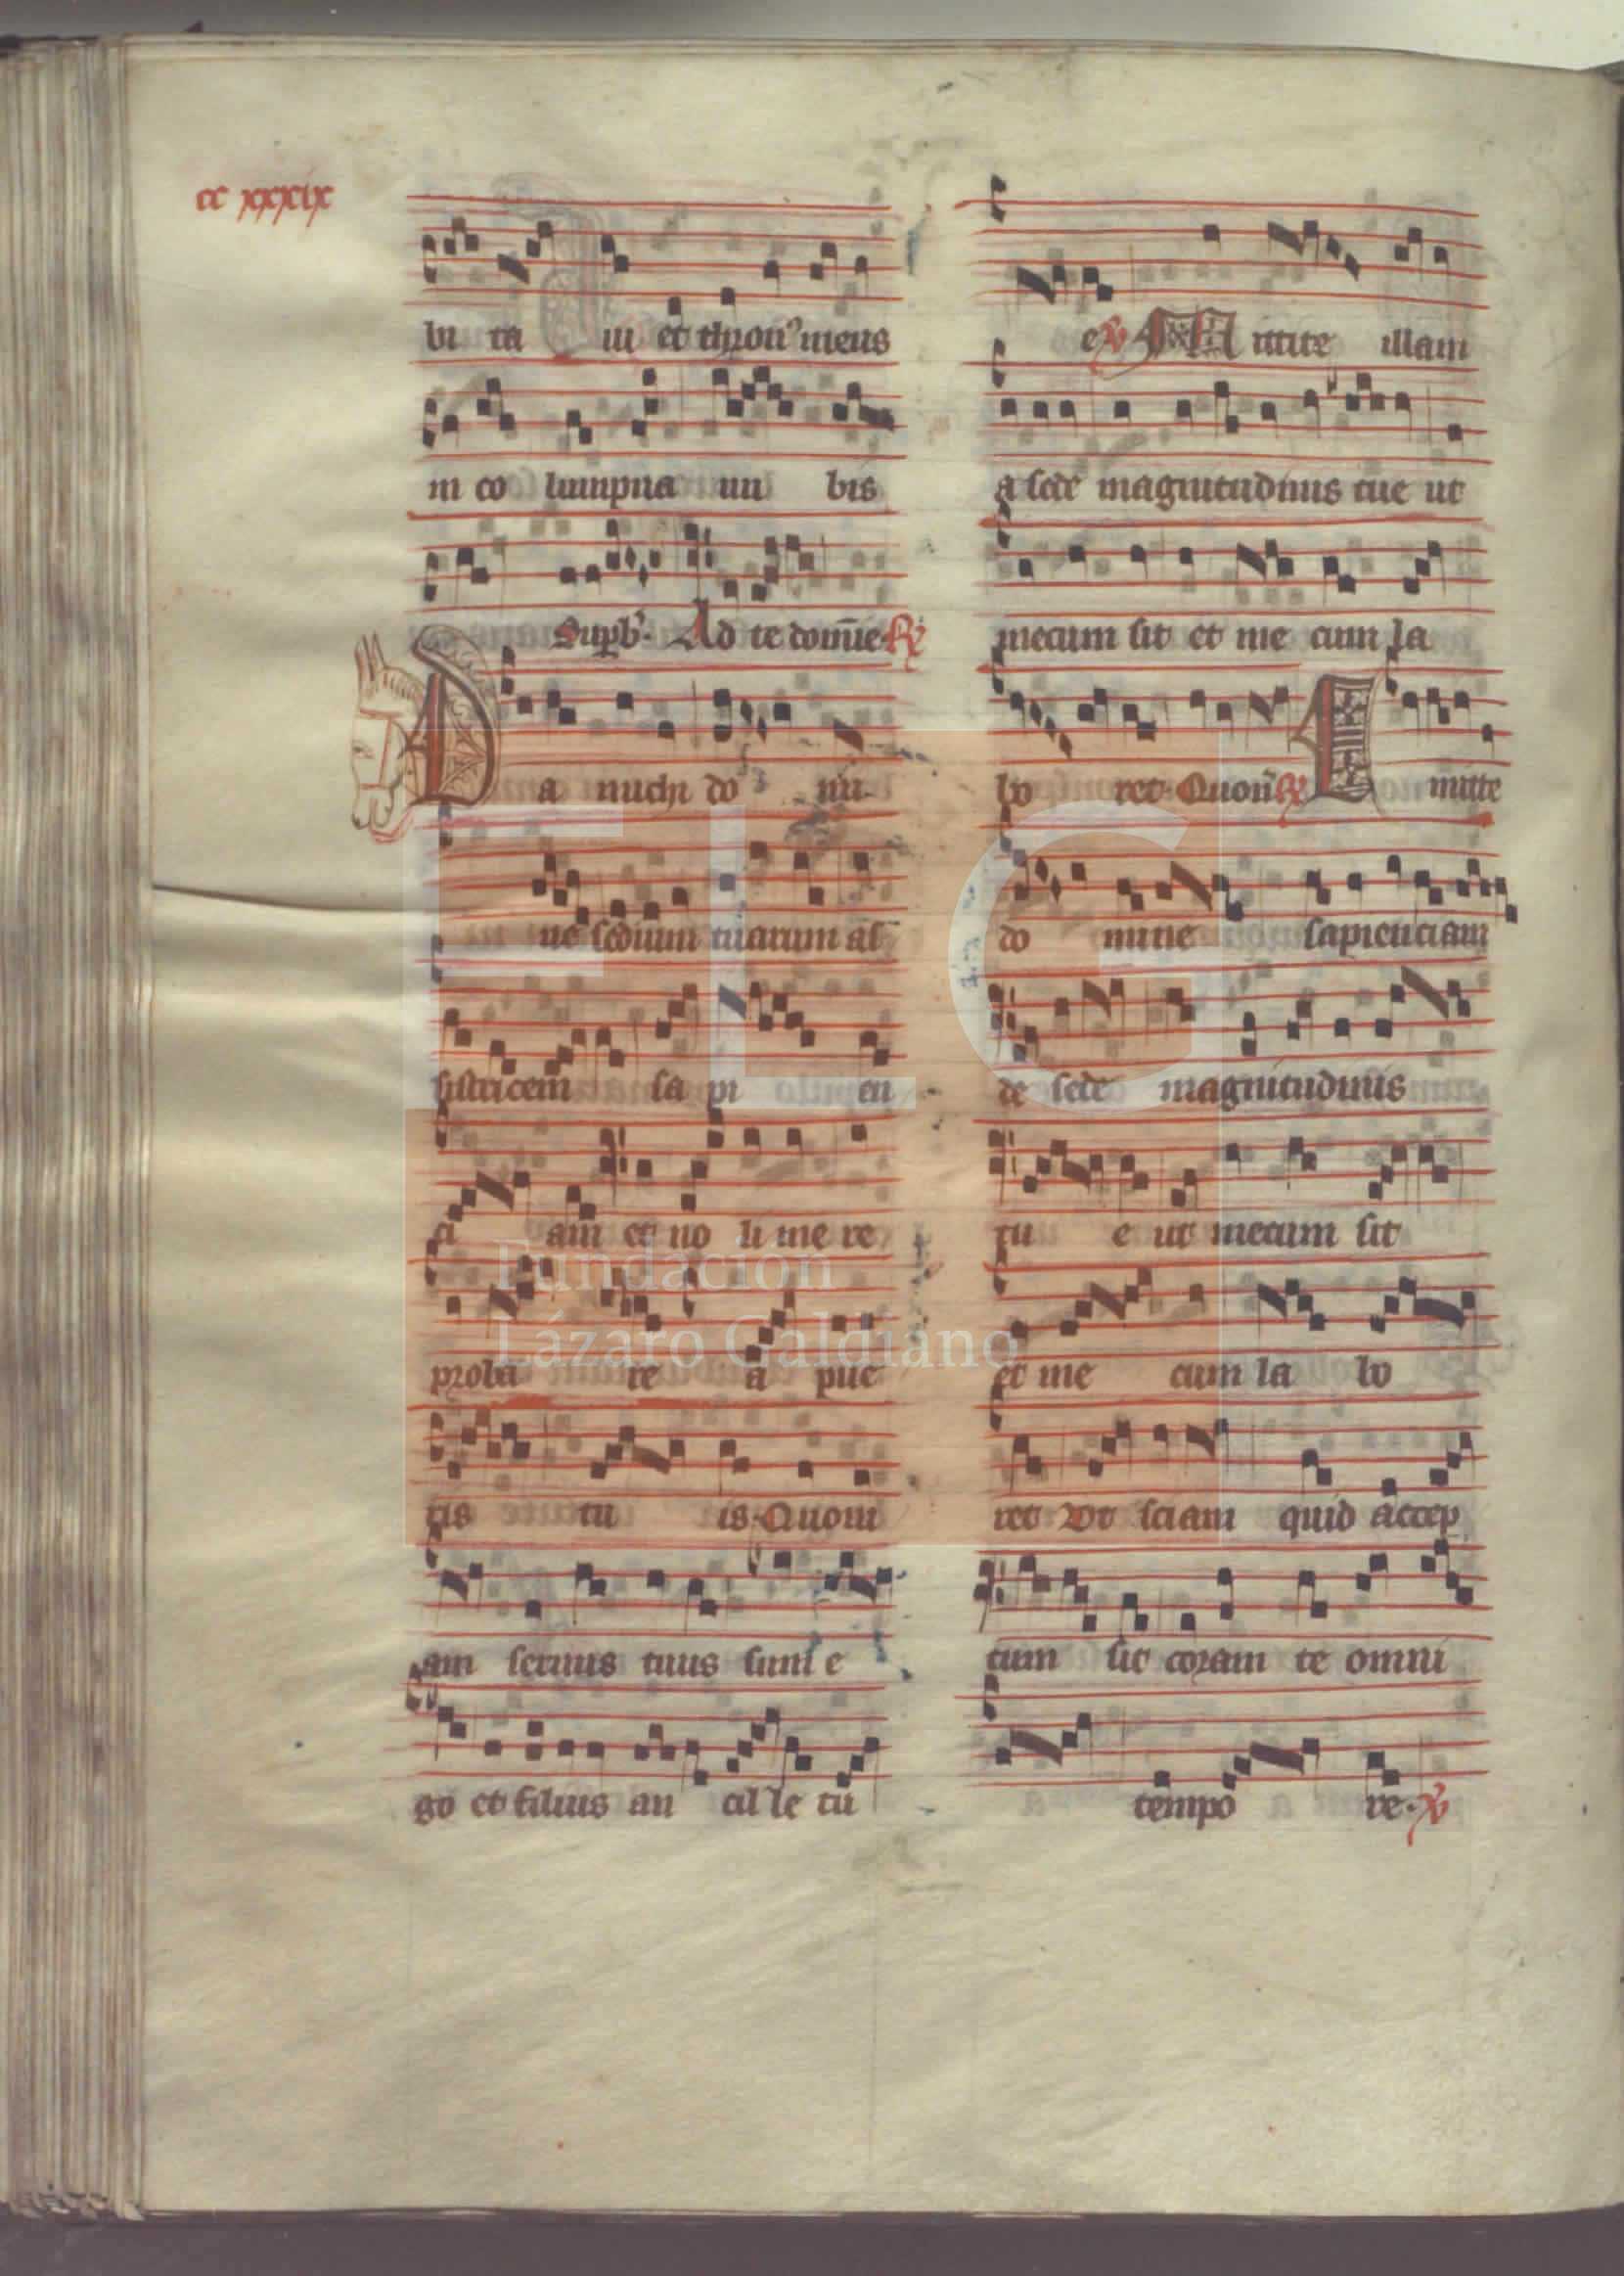 cc xxxix
bi ta ui et thron⁹ meus
in co lumpna nu bis
Sup̱b̓. Ad te dom̄e. ℟
Da michi do mi
ne sedium tuarum as
sistricem sa pi en
ci am et no li me re
proba re a pue
ris tu is. Quoni
am seruus tuus sum e
go et filius an cil le tu
e ℣ Mitte illam
a sede magnitudinis tue ut
mecum sit et me cum la
bo ret. Quoñ ℟ Emitte
do mine sapienciam
de sede magnitudinis
tu e ut mecum sit
et me cum la bo
ret Vt sciam quid accep
tum sit coram te omni
tempo re. ℣
FLG
Fundación
Lázaro Galdiano